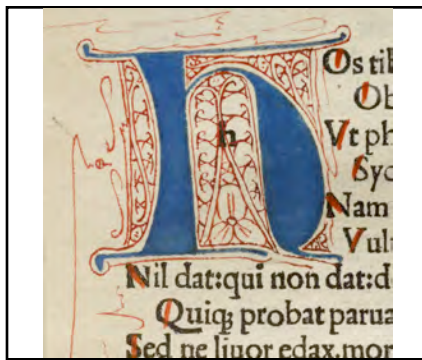 HOs tib
Ob
Vt ph
Syc
Nam
Vul
Nil dat:qui non dat:d
Quiqꝫ probat parua
Sed ne liuor edax.mor